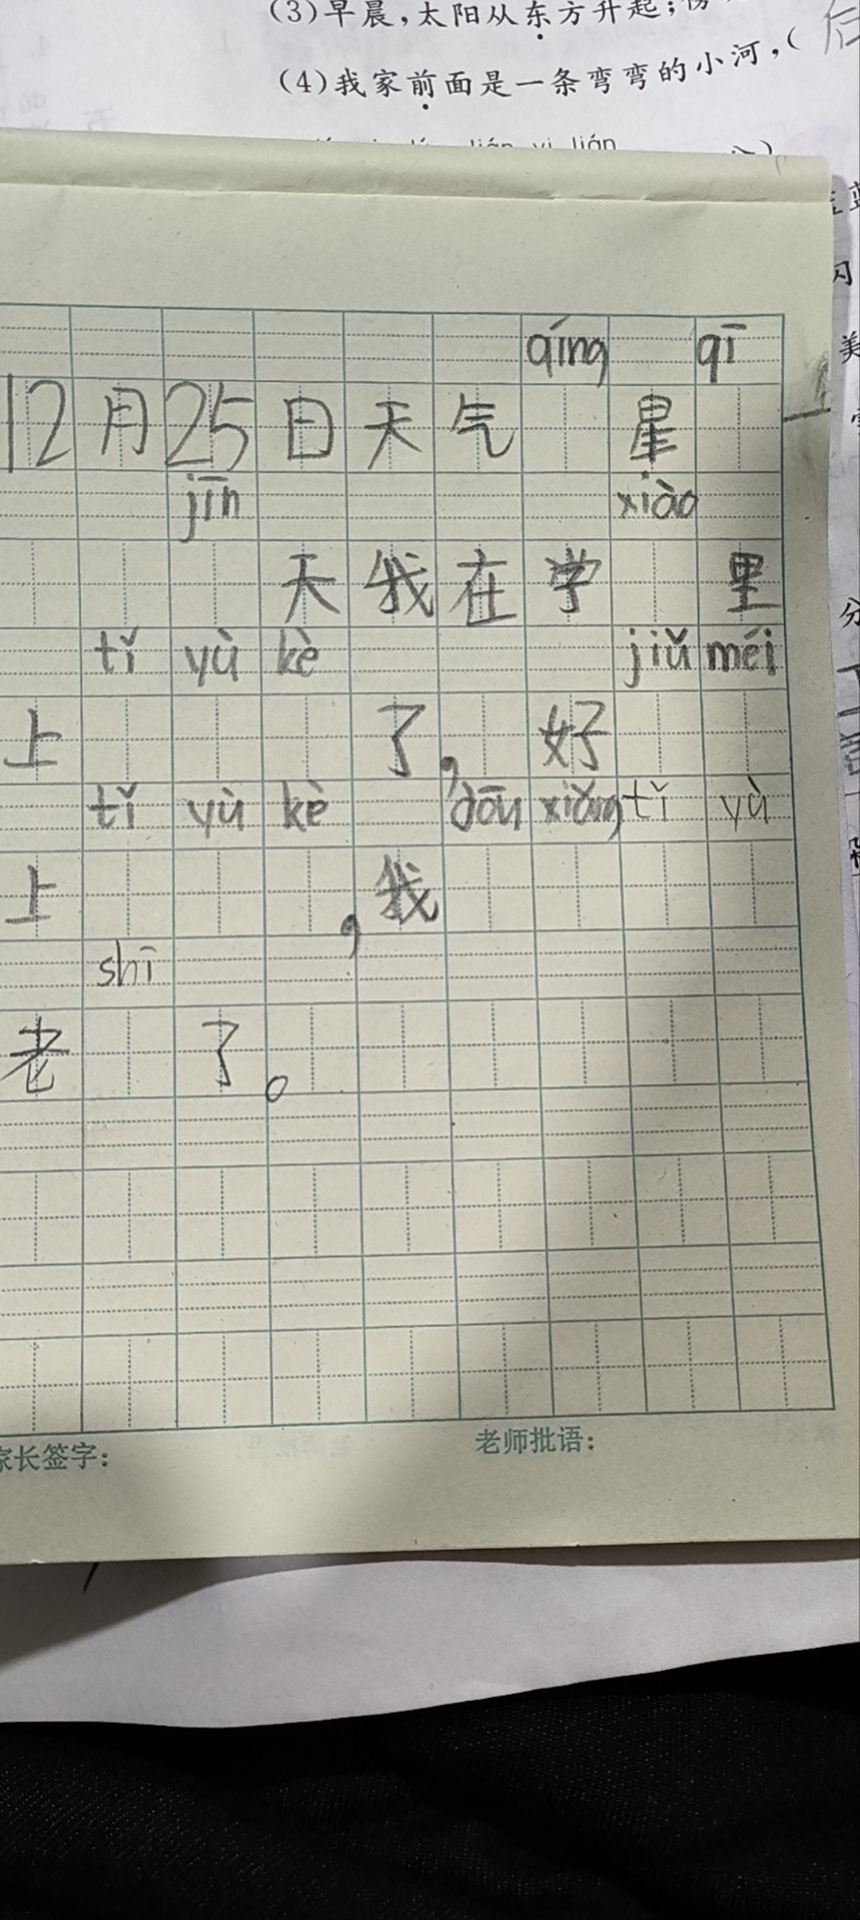 (3)早晨,太阳从东方升起;傍
(4)我家前面是一条弯弯的小河,(后
qíng qī
12月25日天气 星
jīn xiào
天我在学 里
tǐ yù kè jiǔ méi
上 了,好
tǐ yù kè dōu xiǎng tǐ yù
上 ,我
shī
老 了。
家长签字: 老师批语: